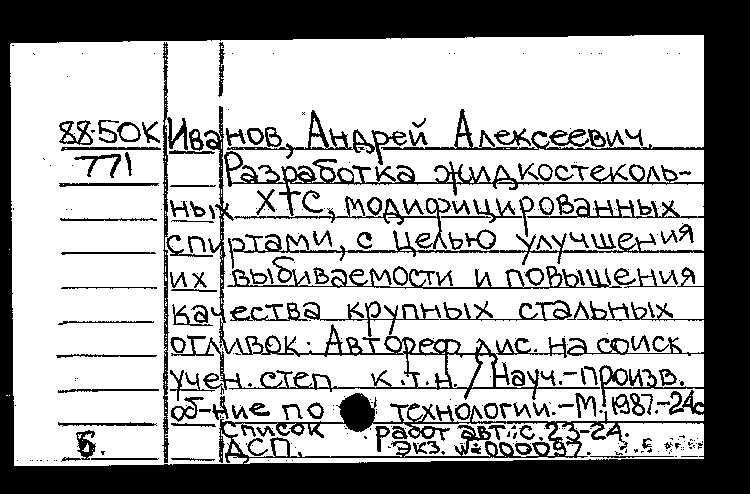 88-50К Иванов, Андрей Алексеевич.
771 Разработка жидкостеколь-
ных ХТС, модифицированных
спиртами, с целью улучшения
их выбиваемости и повышения
качества крупных стальных
отливок: Автореф. дис. на соиск.
учен. степ. к.т.н. / Науч.-произв.
об-ние по технологии.-М., 1987.-24с
Список работ авт.: с. 23-24.
Б. ДСП. Экз. №000097.